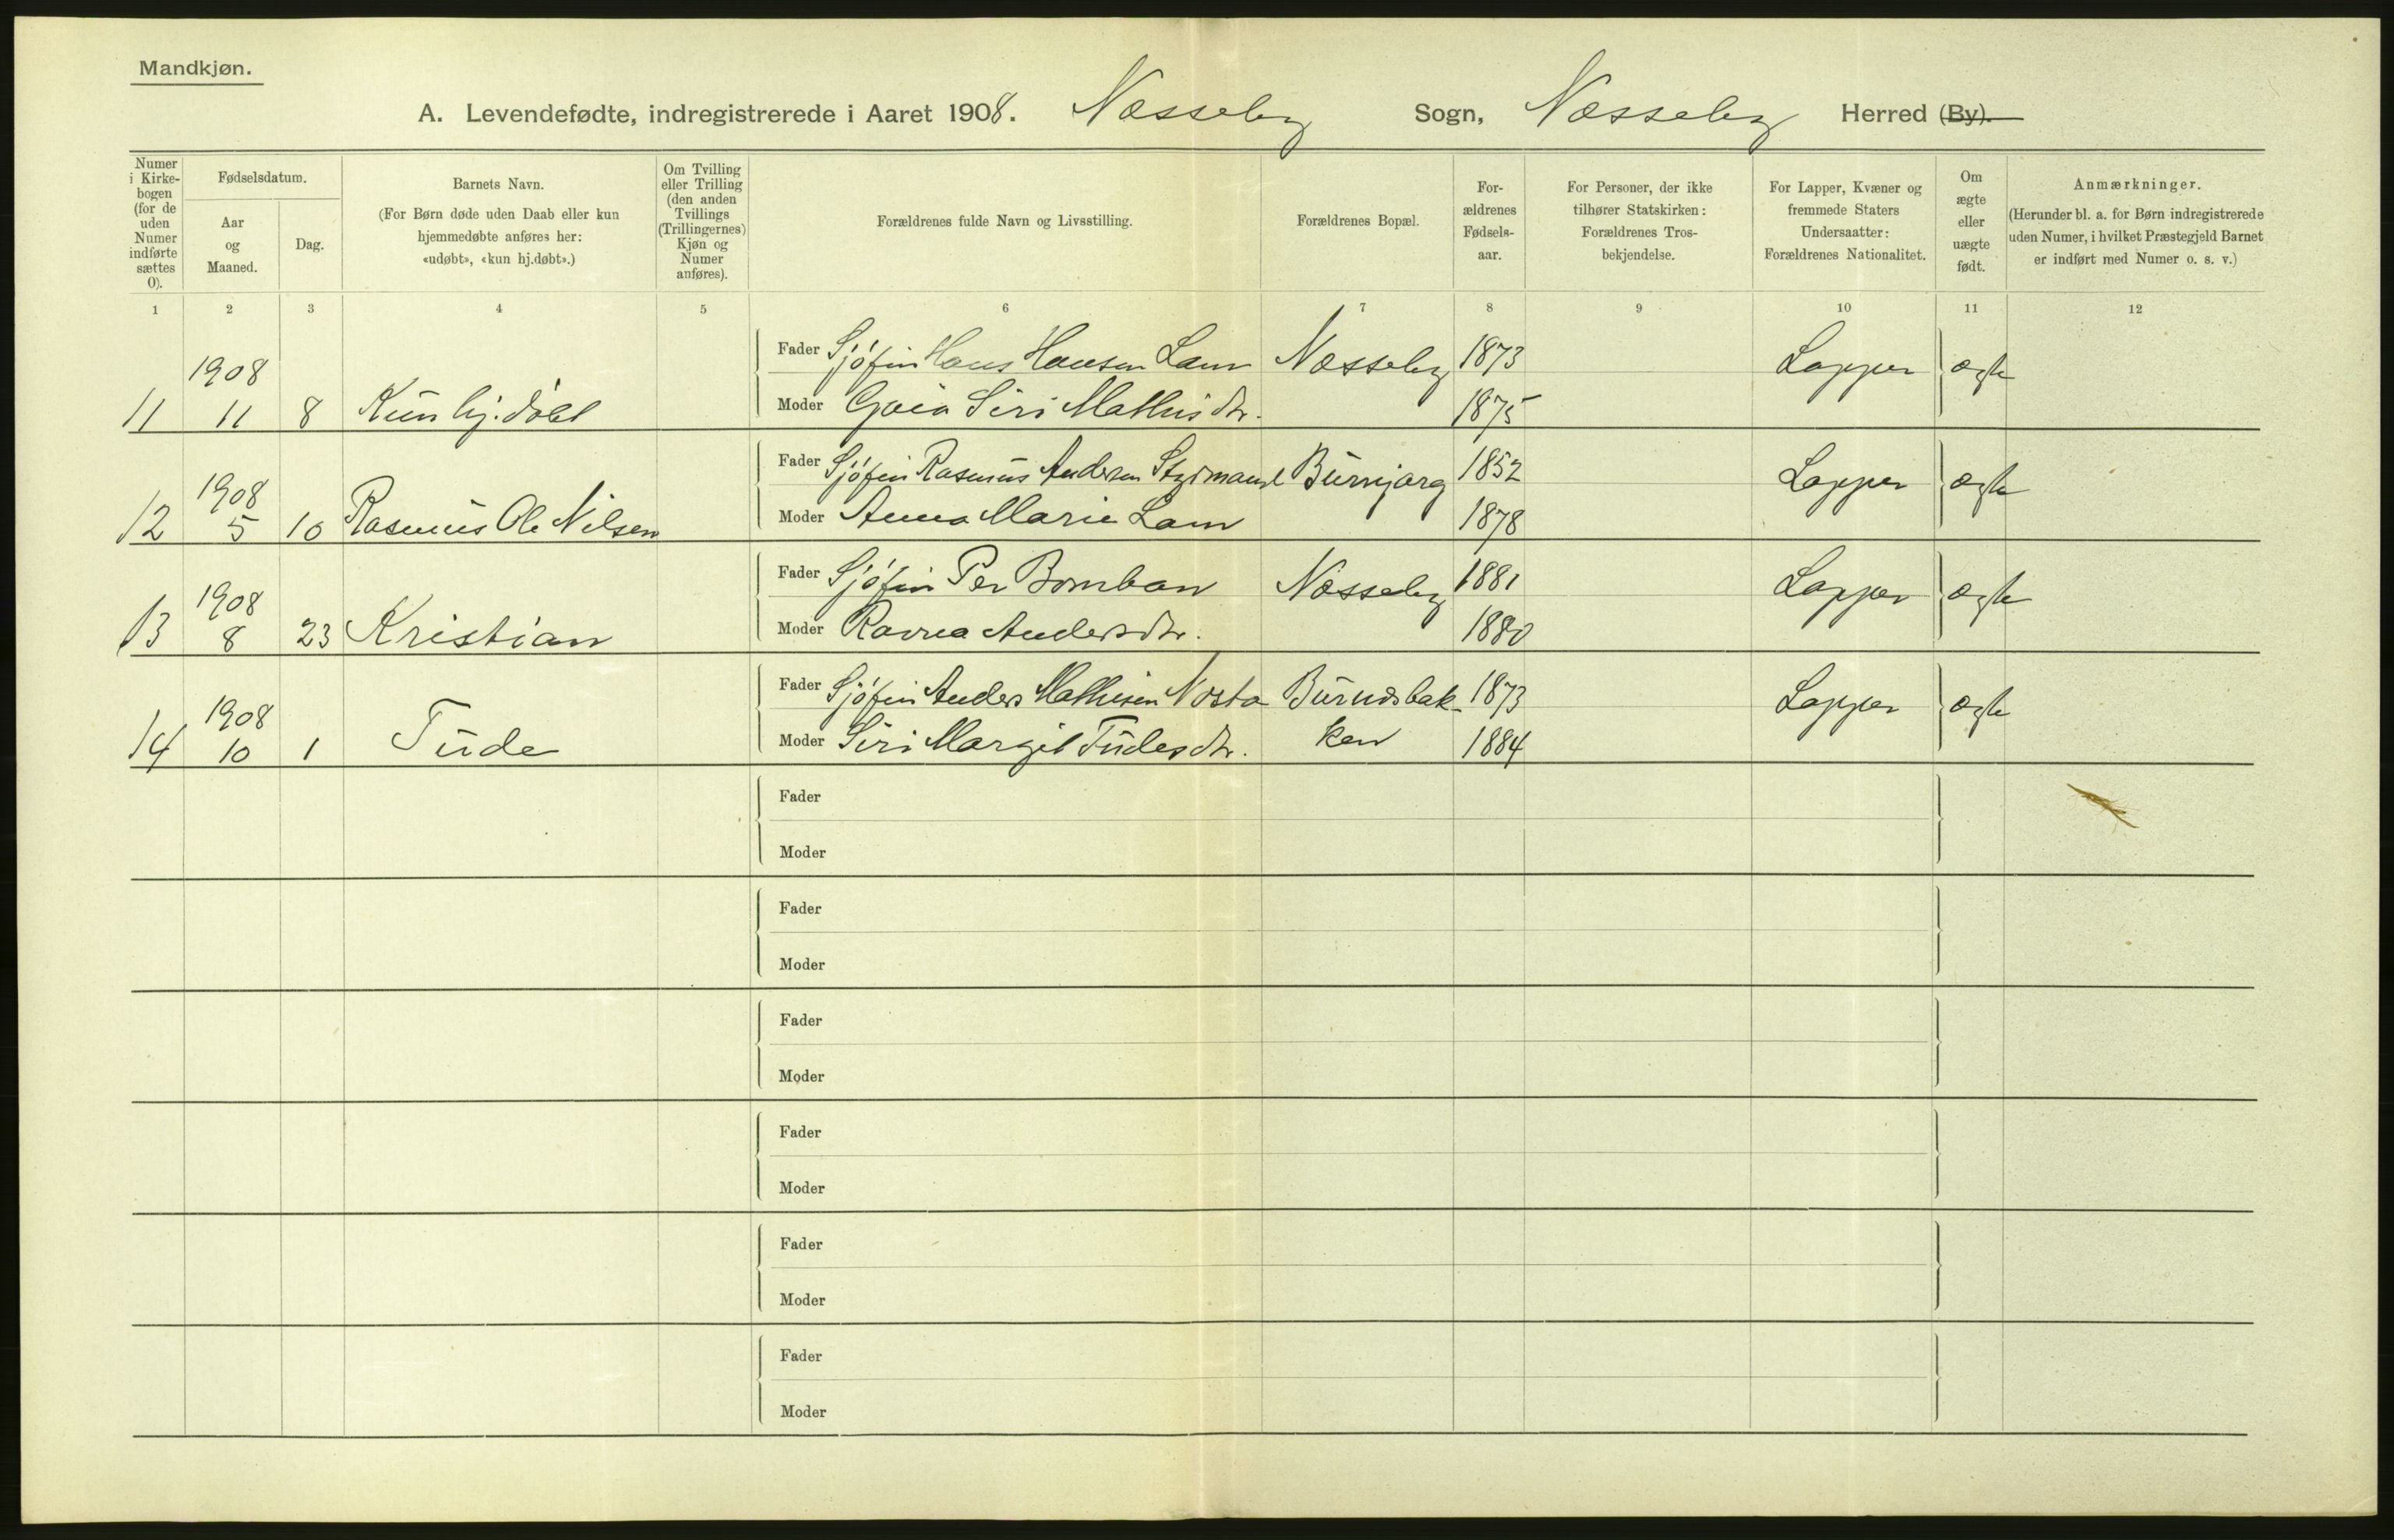 Mandkjøn.
A. Levendefødte, indregistrerede i Aaret 1908. Næsseby Sogn, Næsseby Herred (By).
Numer i Kirkebogen (for de uden Numer indførte sættes 0).
Fødselsdatum.
Aar og Maaned.
Dag.
Barnets Navn.
(For Børn døde uden Daab eller kun hjemmedøbte anføres her: «udøbt», «kun hj.døbt».)
Om Tvilling eller Trilling (den anden Tvillings (Trillingernes) Kjøn og Numer anføres).
Forældrenes fulde Navn og Livsstilling.
Forældrenes Bopæl.
For-ældrenes Fødsels-aar.
For Personer, der ikke tilhører Statskirken: Forældrenes Tros-bekjendelse.
For Lapper, Kvæner og fremmede Staters Undersaatter: Forældrenes Nationalitet.
Om ægte eller uægte født.
Anmærkninger.
(Herunder bl. a. for Børn indregistrerede uden Numer, i hvilket Præstegjeld Barnet er indført med Numer o. s. v.)
1 2 3 4 5 6 7 8 9 10 11 12
1908 Fader Sjøfin Hans Hansen Lam Næsseby 1873 Lapper ægte
11 11 8 Kun hj. døbt Moder Gaia Siri Mathisdtr. 1875
1908 Fader Sjøfin Rasmus Andersen Styrmand Burnjarg 1852 Lapper ægte
12 5 10 Rasmus Ole Nilsen Moder Anna Marie Lam 1878
1908 Fader Sjøfin Per Bomban Næsseby 1881 Lapper ægte
13 8 23 Kristian Moder Ravna Andersdtr. 1880
1908 Fader Sjøfin Anders Mathisen Nosta Burnæsbak- 1873 Lapper ægte
14 10 1 Tude Moder Siri Margit Tudesdtr. ken 1884
Fader
Moder
Fader
Moder
Fader
Moder
Fader
Moder
Fader
Moder
Fader
Moder